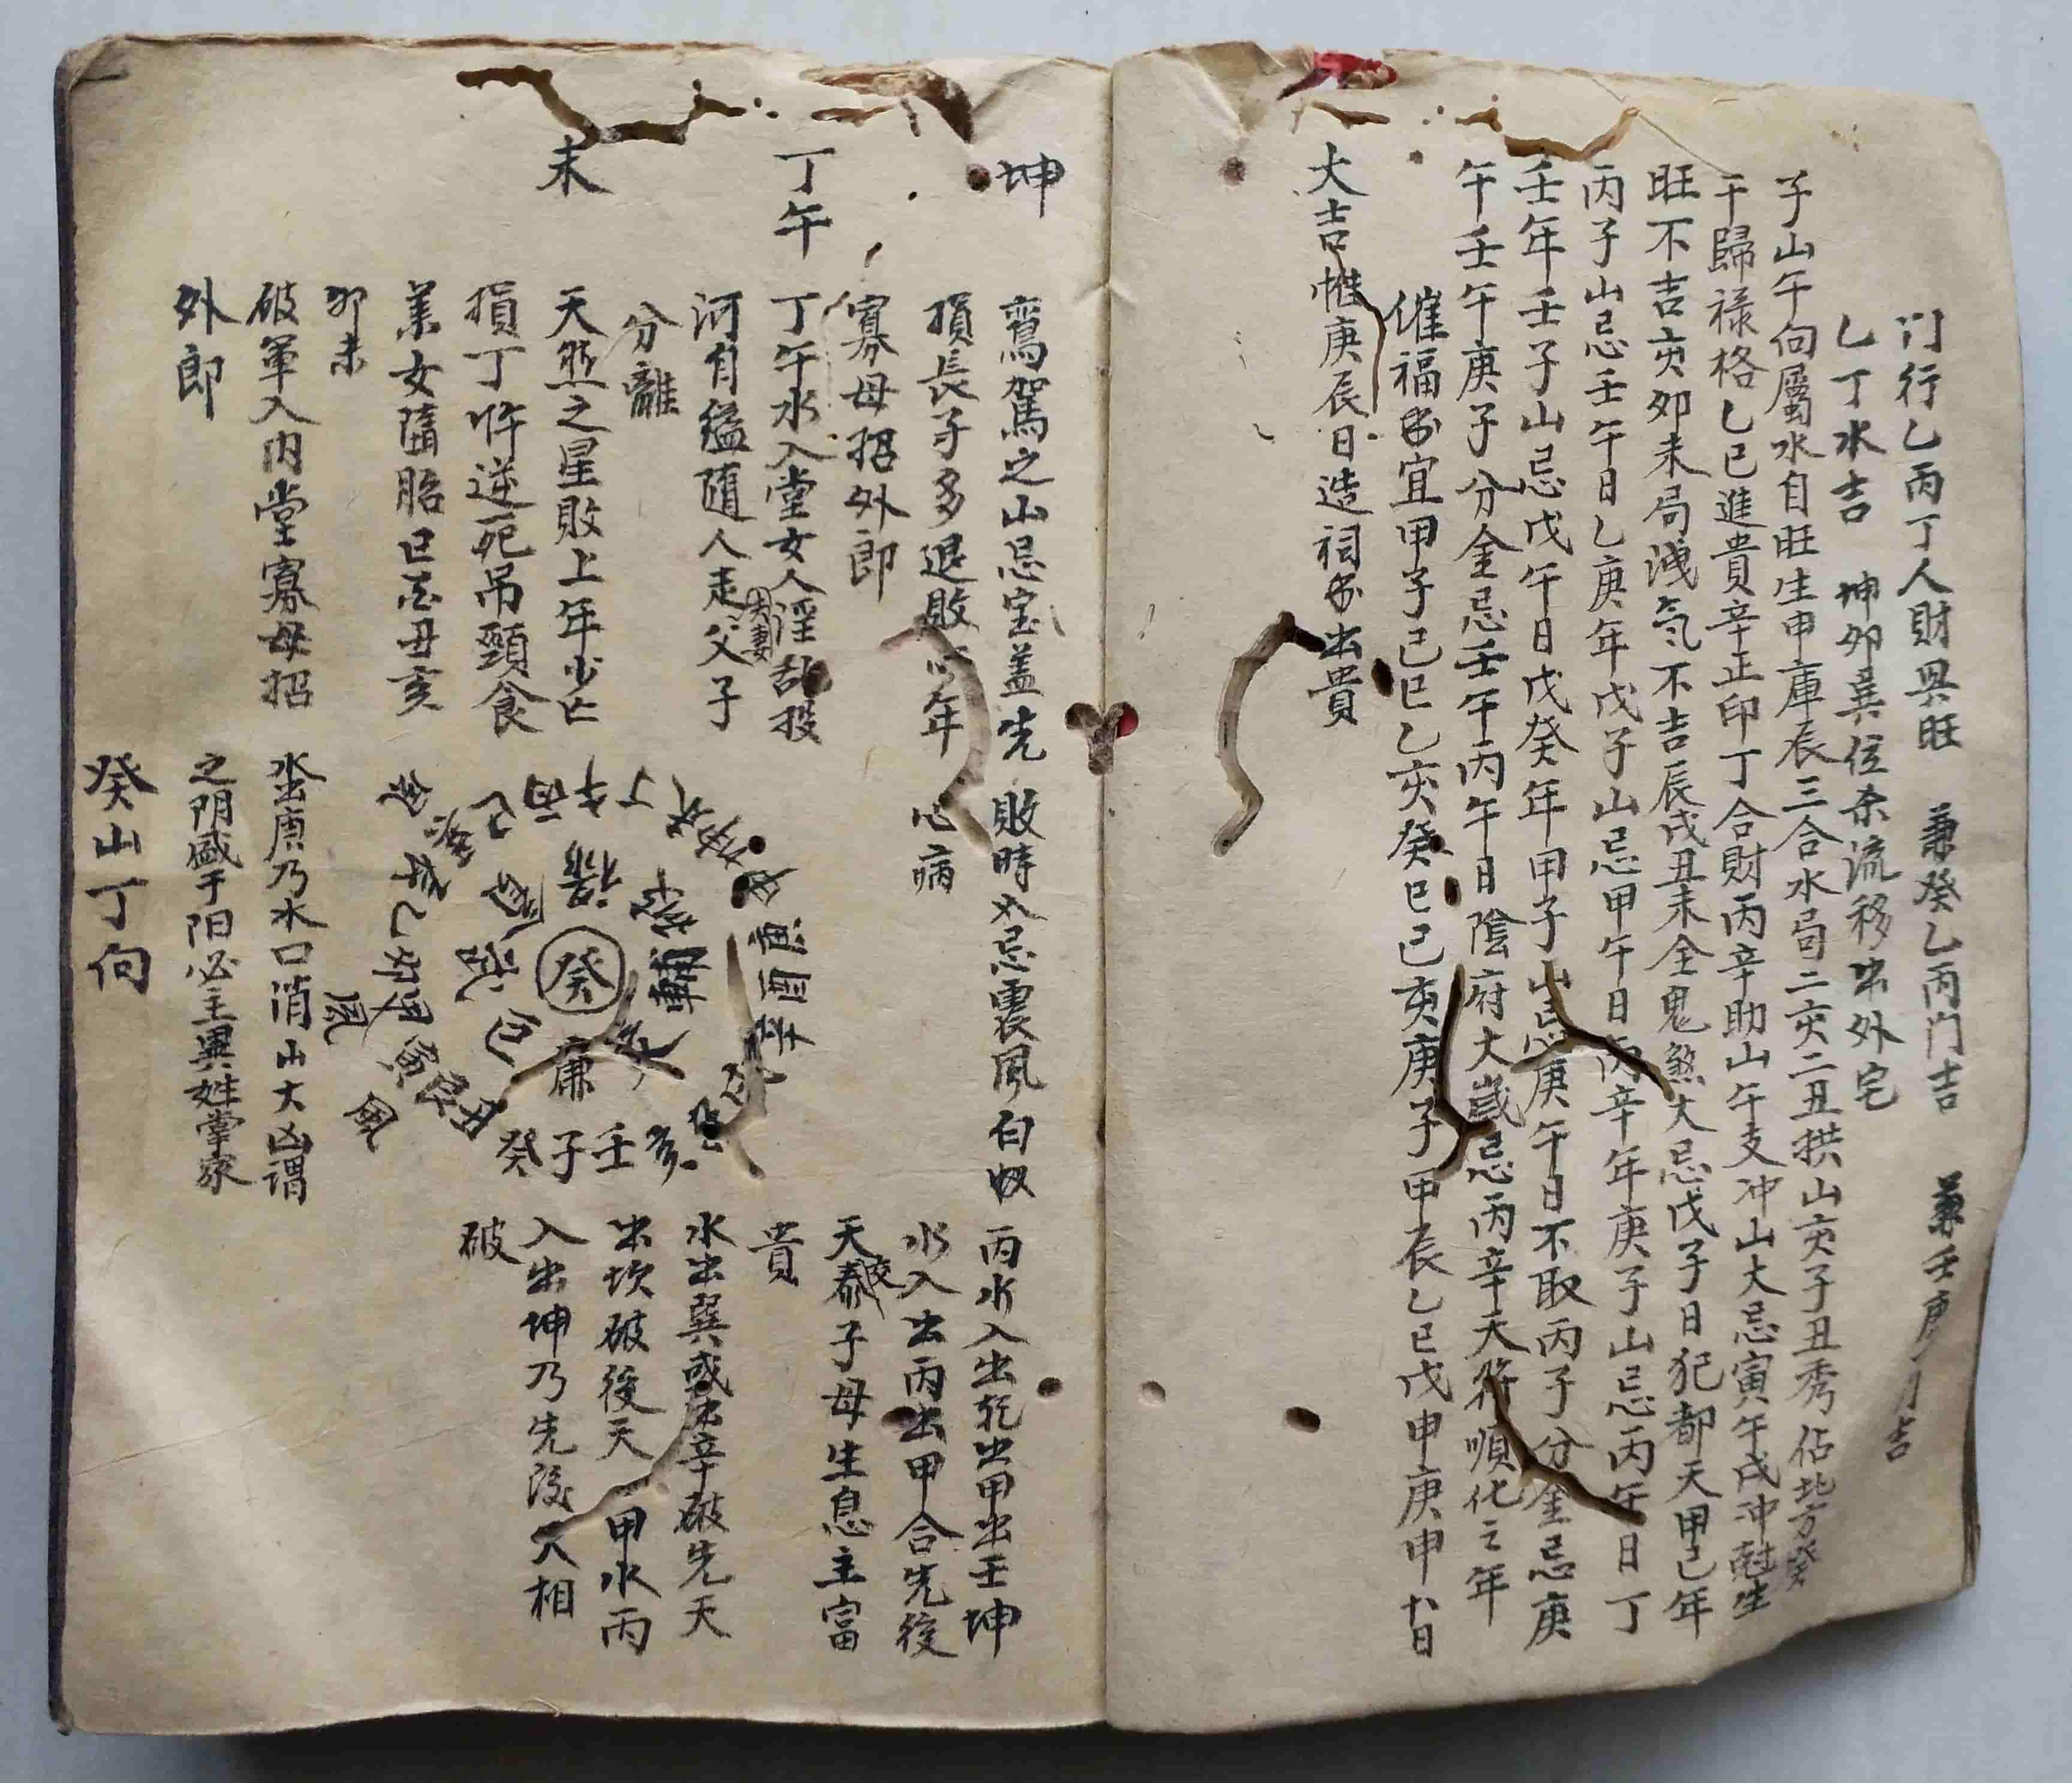 门行乙丙丁人財興旺 兼癸乙丙门吉 兼壬庚 吉
乙丁水吉 坤卯巽位杀流移出外宅
子山午向屬水自旺生申庫辰三合水局二亥二丑拱山亥子丑秀佔北方癸
干歸祿格乙巳進貴辛正印丁合財丙辛助山午支冲山大忌寅午戌冲尅生
旺不吉亥卯未局洩气不吉辰戌丑未全鬼煞大忌戊子日犯都天甲己年
丙子山忌壬午日乙庚年戊子山忌甲午日丙辛年庚子山忌丙午日丁
壬年壬子山忌戊午日戊癸年甲子山忌庚午日不取丙子分金忌庚
午壬午庚子分金忌壬午丙午日陰府大歲忌丙辛天將順化之年
催福多宜甲子己巳乙亥癸巳己亥庚子甲辰乙巳戊申庚申十日
大吉惟庚辰日造祠多出貴
坤
鸞駕之山忌宝盖先
損長子多退敗 年
寡母招外郎
丁午
丁午水入堂女人淫乱投
河自縊隨人走父子
夫妻
分離
未
天煞之星敗上年少亡
損丁忤逆死吊頸食
葉女隨胎巳忌丑亥
卯未
破軍入内堂寡母招
外郎
敗時 忌震風白蚁
心病
癸
廉
癸子壬亥
丁午丙巳
辛酉庚
水出庚乃水口消山大凶谓
之阴盛于阳必主異姓掌家
丙水入出乾出甲出壬坤
水入出丙出甲合先後
天泰交子母生息主富
貴
水出巽或出辛破先天
出坎破後天 甲水丙
入出坤乃先後天相
破
癸山丁向